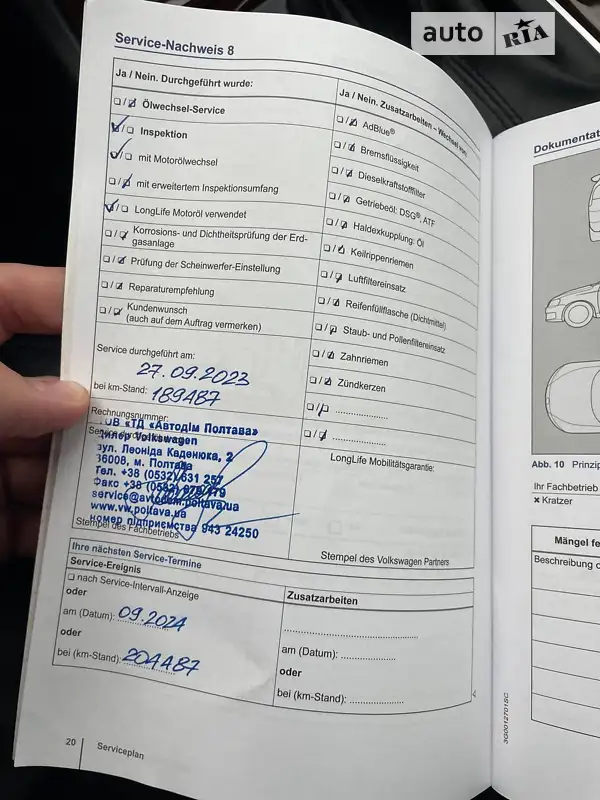 auto RIA
Service-Nachweis 8
Ja / Nein. Durchgeführt wurde:
❏/❏ Ölwechsel-Service
❏/❏ Inspektion
❏/❏ mit Motorölwechsel
❏/❏ mit erweitertem Inspektionsumfang
❏/❏ LongLife Motoröl verwendet
❏/❏ Korrosions- und Dichtheitsprüfung der Erd-
gasanlage
❏/❏ Prüfung der Scheinwerfer-Einstellung
❏/❏ Reparaturempfehlung
❏/❏ Kundenwunsch
(auch auf dem Auftrag vermerken)
Service durchgeführt am:
27.09.2023
bei km-Stand: 189487
Rechnungsnummer:
ТОВ «ТД «Автодім Полтава»
Дилер Volkswagen
вул. Леоніда Каденюка, 2
36008, м. Полтава
Тел. +38 (0532) 631 257
Факс +38 (0532)
service@avtodom.poltava.ua
www.vw.poltava.ua
номер підприємства 943 24250
Stempel des Fachbetriebs
Ja / Nein. Zusatzarbeiten – Wechsel von:
❏/❏ AdBlue®
❏/❏ Bremsflüssigkeit
❏/❏ Dieselkraftstofffilter
❏/❏ Getriebeöl: DSG®, ATF
❏/❏ Haldexkupplung: Öl
❏/❏ Keilrippenriemen
❏/❏ Luftfiltereinsatz
❏/❏ Reifenfüllflasche (Dichtmittel)
❏/❏ Staub- und Pollenfiltereinsatz
❏/❏ Zahnriemen
❏/❏ Zündkerzen
❏/❏ ....................
❏/❏ ....................
LongLife Mobilitätsgarantie:
Stempel des Volkswagen Partners
Ihre nächsten Service-Termine
Service-Ereignis
❏ nach Service-Intervall-Anzeige
oder
am (Datum): 09.2024
oder
bei (km-Stand): 204487
Zusatzarbeiten
am (Datum): ................
oder
bei (km-Stand): ................
20 Serviceplan
3G0012701SC
Dokumentat
Abb. 10 Prinzip
Ihr Fachbetrieb
× Kratzer
Mängel fe
Beschreibung d